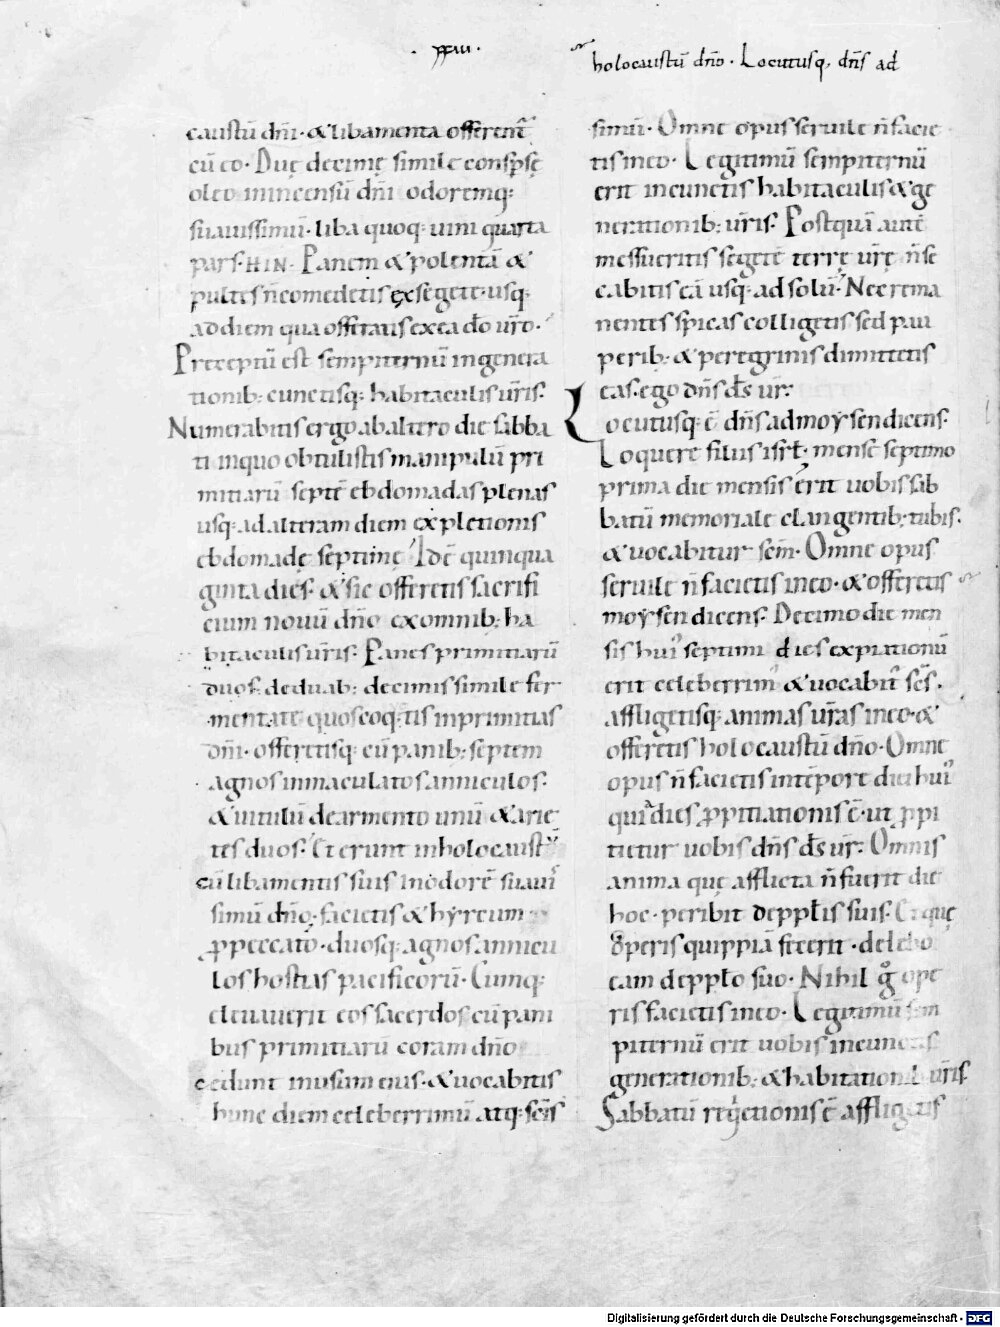 · xxiii ·
holocaustū dn̄o · Locutusq; dn̄s ad
caustū dn̄i · & libamenta offerent̄
cū eo · Duę decimę simile consp̄sę
oleo inincensū dn̄i odoremq;
suauissimū · liba quoq; uini quarta
pars · HIN · Panem & polentā &
pultes n̄ comedetis ex segete · usq;
ad diem qua offeratis ex ea dō ur̄o ·
Preceptū est sempiternū in genera
tionib; cunctisq; habitaculis ur̄is ·
Numerabitis ergo ab altero die sabba
ti in quo obtulistis manipulū pri
mitiarū septē ebdomadas plenas
usq; ad alteram diem expletionis
ebdomadę septimę Idē quinqua
ginta dies · & sic offeretis sacrifi
cium nouū dn̄o ex omnib; ha
bitaculis ur̄is · Panes primitiarū
duos · deduab; decimis simile fer
mentate quos coq;tis in primitias
dn̄i · offeretisq; cū panib; septem
agnos inmaculatos anniculos ·
& uitulū de armento unū & arie
tes duos · Et erunt in holocaustū
cū libamentis suis in odorē suaui
simū dn̄o · facietis & hyrcum
p̱ peccato · duosq; agnos annicu
los hostias pacificorū · Cumq;
eleuauerit eos sacerdos cū pani
bus primitiarū coram dn̄o
cedunt in usum eius · & uocabitis
hunc diem celeberrimū atq; sc̄is
simū · Omne opus seruile n̄ facie
tis in eo · Legitimū sempiternū
erit in cunctis habitaculis & ge
nerationib; ur̄is · Postquā autē
messueritis segetē terrę ur̄ę n̄ se
cabitis eā usq; ad solū · Nec rema
nentes spicas colligetis sed pau
perib; & peregrinis dimittetis
eas · ego dn̄s d̄s ur̄ ·
Locutusq; ē dn̄s ad moysen dicens ·
Loquere filiis isrl̄ · mense septimo
prima die mensis erit uobis sab
batū memoriale clangentib; tubis ·
& uocabitur sc̄m · Omne opus
seruile n̄ facietis in eo · & offeretis
moysen dicens · Decimo die men
sis hui' septimi dies expiationū
erit celeberrim' & uocabit' sc̄s ·
affligetisq; animas ur̄as in eo · &
offeretis holocaustū dn̄o · Omne
opus n̄ facietis in tēpore diei hui'
quia dies p̱pitiationis ē · ut p̱pi
tietur uobis dn̄s d̄s ur̄ · Omnis
anima quę afflicta n̄ fuerit die
hoc · peribit de pp̄lis suis · Et quę
operis quippiā fecerit · delebo
eam de pp̄lo suo · Nihil g° ope
ris facietis in eo · Legitimū sem
piternū erit uobis in cunctis
generationib; & habitationib; ur̄is ·
Sabbatū requietionis ē affligetis